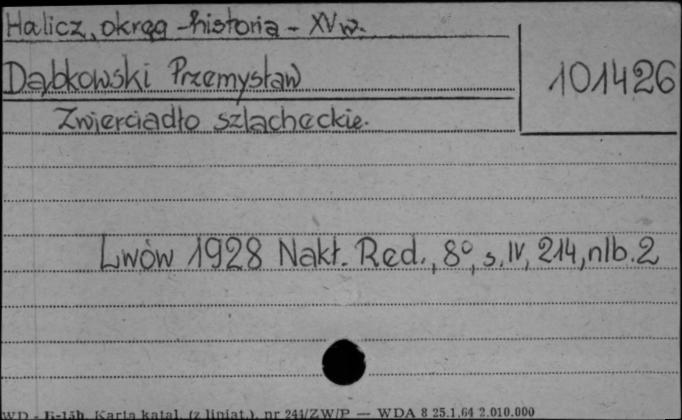 Halicz, okręg - historia - XV w.
Dąbkowski Przemysław
101426
Zwierciadło szlacheckie.
Lwów 1928 Nakł. Red., 8°, s. IV, 214, nlb. 2
WD - K-15b. Karta katal. (z liniat.). nr 241/ZW/P — WDA 8 25.1.64 2.010.000